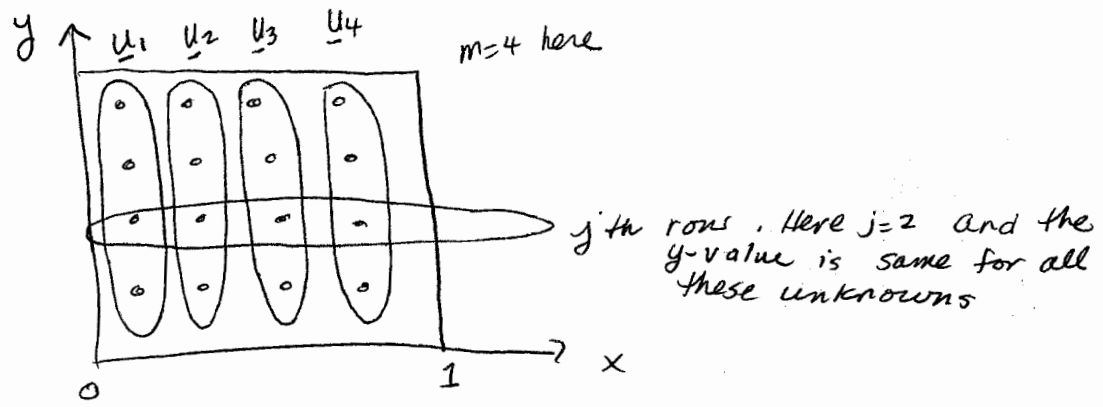 y
u1 u2 u3 u4
m=4 here
jth rows. Here j=2 and the
y-value is same for all
these unknowns
0
1
x